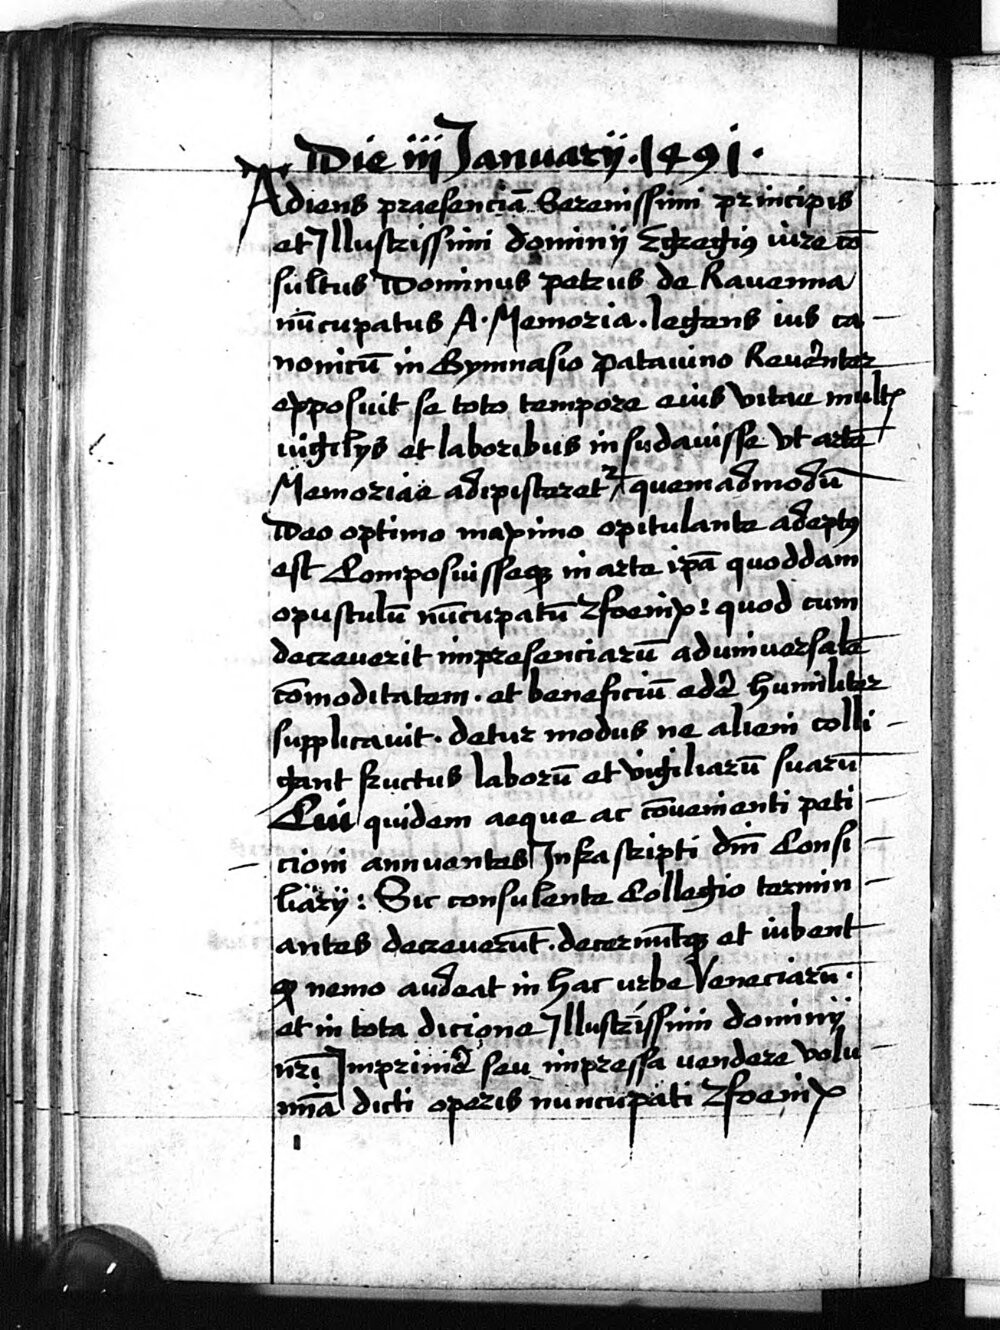 Die iij Januarij · 1491 ·
Adiens praesenciā Serenissimi principis
et Illustrissimi dominij Egregiꝰ iure cō
sultus Dominus petrus de Rauenna
nūcupatus A · Memoria · legens ius ca
nonicū in Gymnasio patauino Reuēnter
epposuit se toto tempore eius vitae multꝭ
uigilys et laboribus insudauisse vt artē
Memoriae adipisteret᷑ quemadmodū
Deo optimo maximo opitulante adeptꝰ
est Composuisseqꝫ in arte ipā quoddam
opusculū nūcupatū foenix : quod cum
decreuerit impresenciarū ad uniuersalē
cōmoditatem · et beneficiū edē humiliter
supplicauit · detur modus ne alieni colli
gant fructus laborū et vigiliarū suarū
Cui quidem aeque ac cōuenienti peti
cioni annuentes Infrascripti dn̄i Consi
liarij : Sic consulente Collegio termin
antes decreuerūt · decernūtqꝫ et iubent
ꝙ nemo audeat in hac urbe Veneciarū ·
et in tota dicione Illustrissimi dominij
nr̄i Imprimē seu impressa uendere volu
mīa dicti operis nuncupati foenix